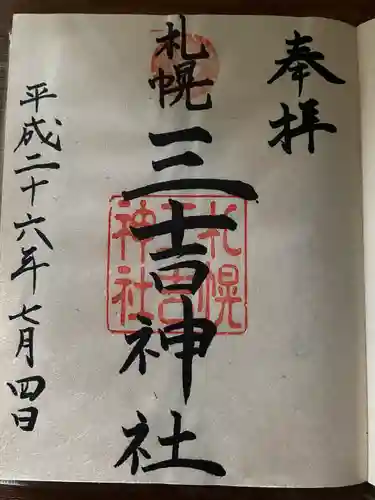 奉拝
札幌
三吉神社
札幌
三吉
神社
平成二十六年七月四日